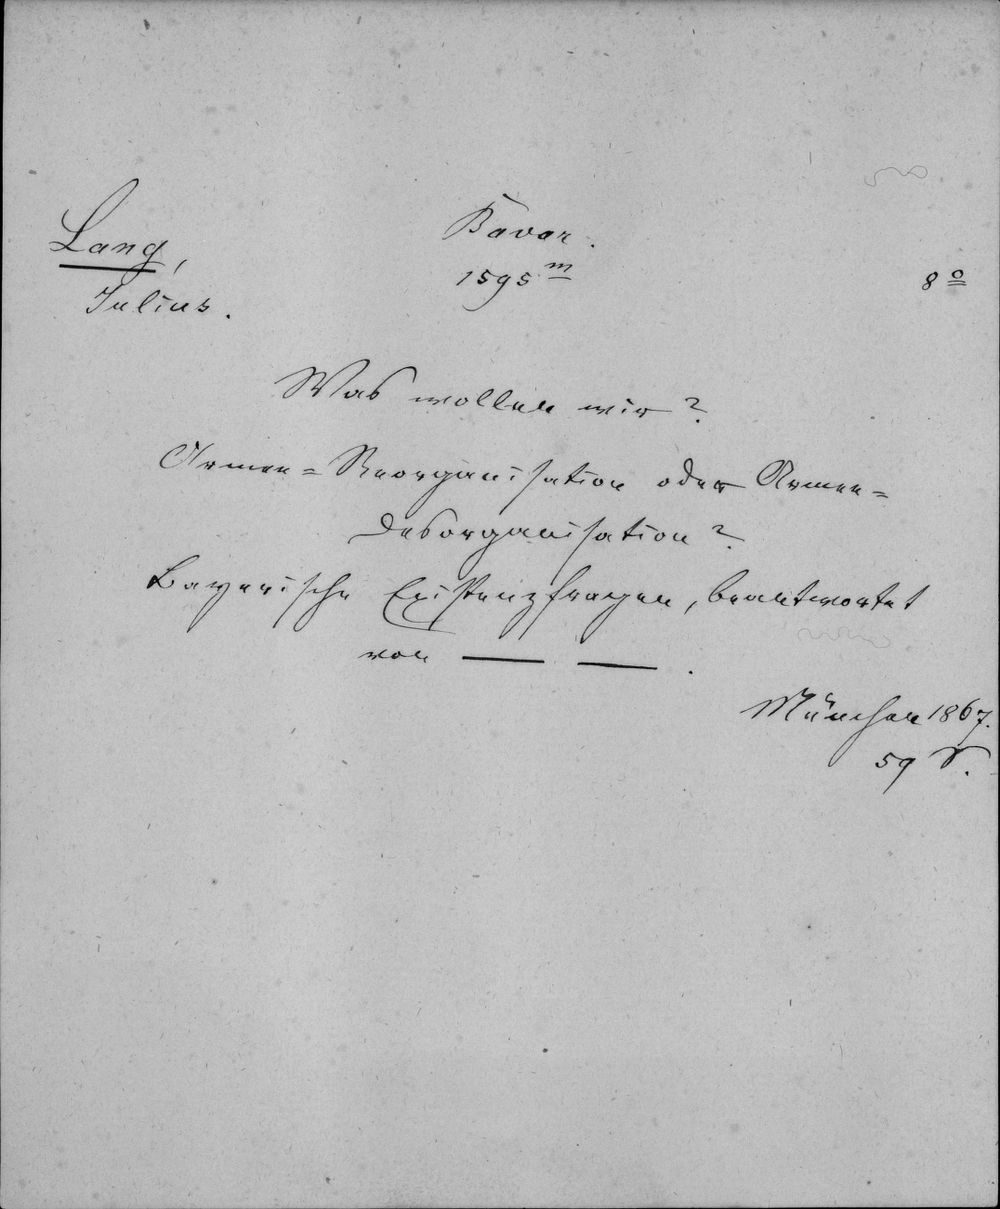 Lang,
Julius.
Bavar.
1595 m
8o
Was wollen wir?
Armee=Reorganisation oder Armee=
desorganisation?
Bayerische Existenzfragen, beantwortet
von — — .
München 1867.
59 S.